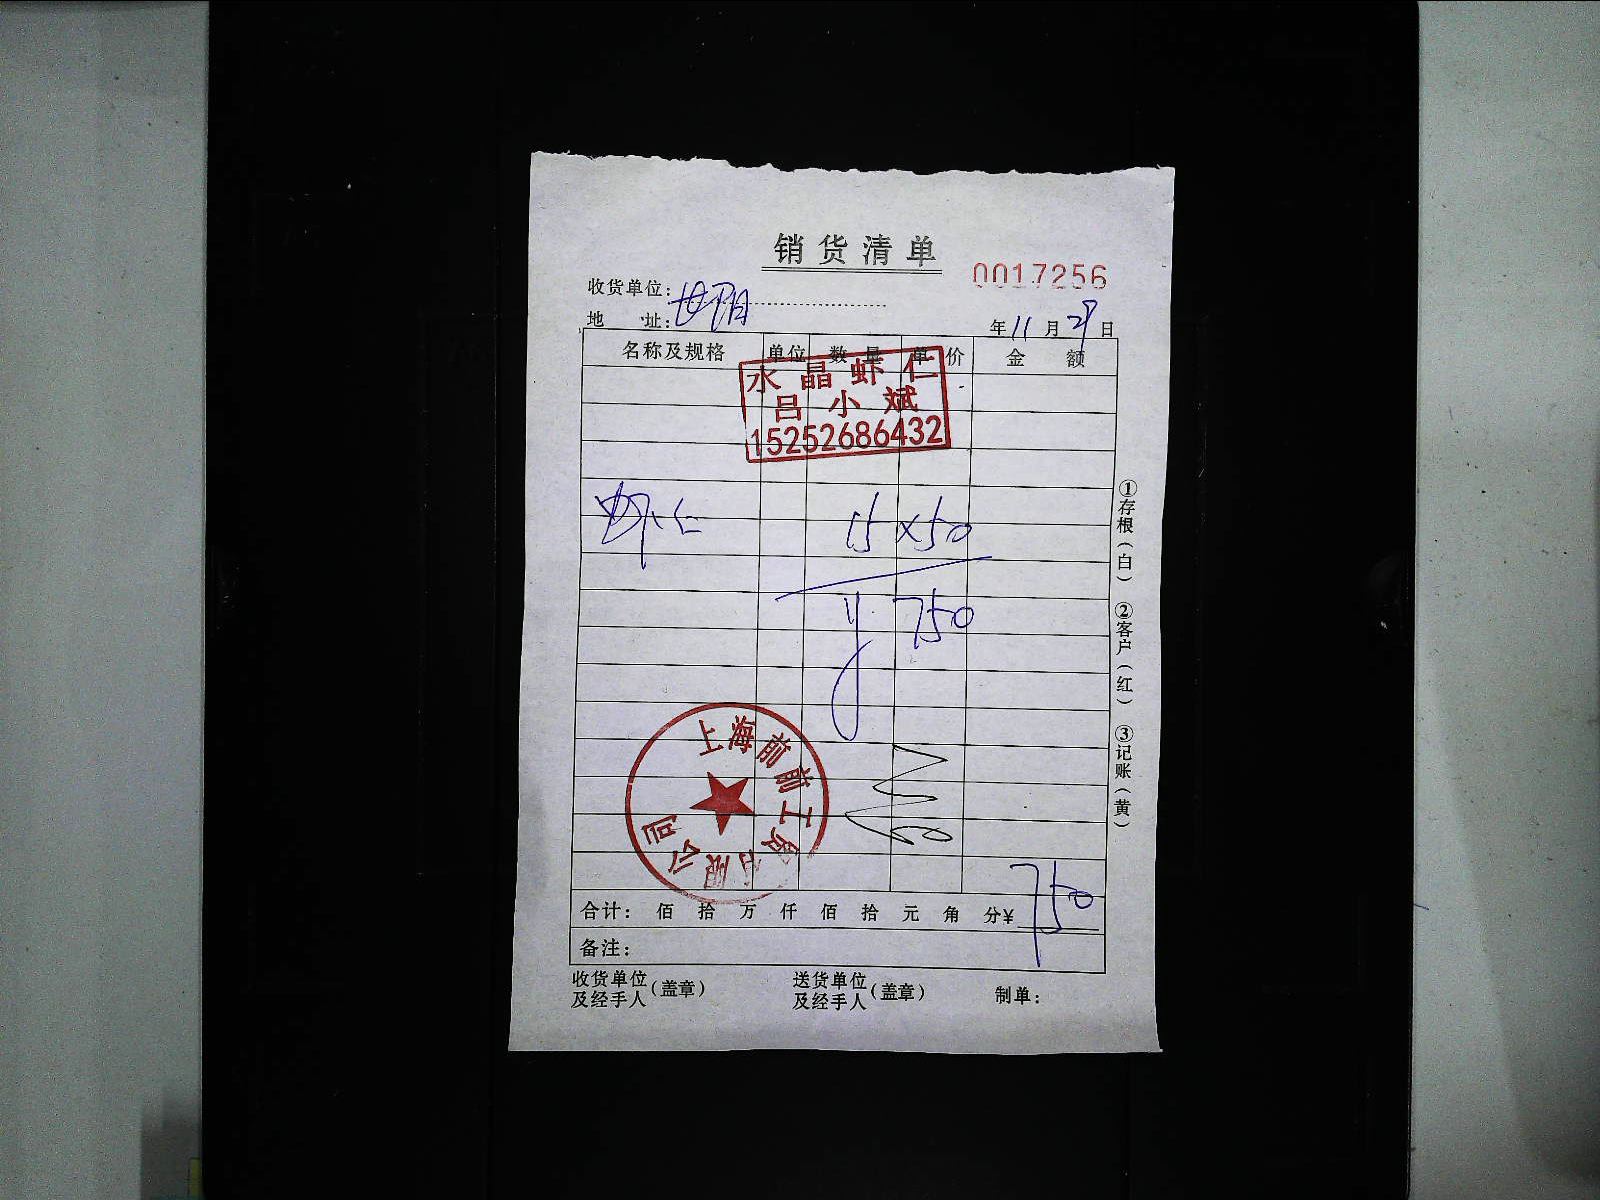 销货清单
0017256
收货单位：世阳
地 址：
年 11 月 29 日
名称及规格 单位 数量 单价 金额
水晶虾仁
吕小斌
15252686432
虾仁 15×50
¥ 750
上海前前工贸有限公司
合计： 佰 拾 万 仟 佰 拾 元 角 分¥ 750
备注：
收货单位及经手人（盖章） 送货单位及经手人（盖章） 制单：
①存根（白） ②客户（红） ③记账（黄）